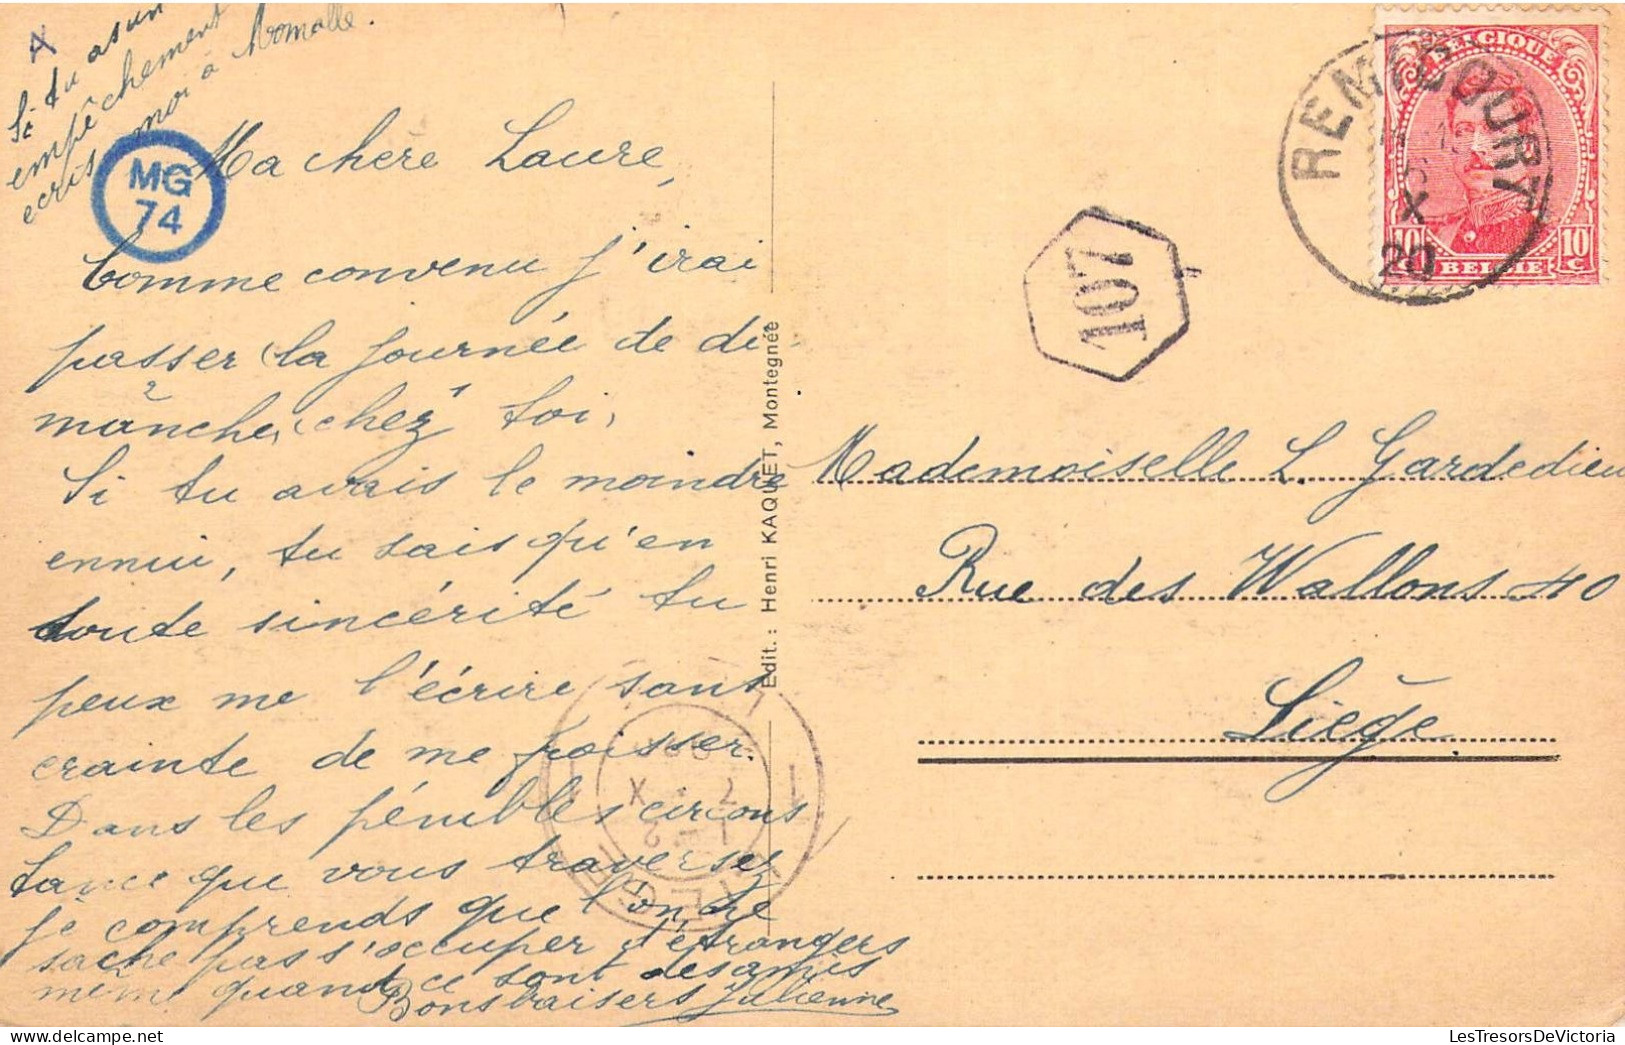 Si tu as un
empêchement
ecris moi à Momalle.
MG
74
Ma chère Laure,
Comme convenu j'irai
passer (la journée de di
manche, (chez toi,
Si tu avais le moindre
ennui, tu sais qu'en
toute sincérité tu
peux me l'écrire sans
crainte de me froisser.
Dans les pénibles circons
tance que vous traversez
je comprends que l'on ne
sache pas s'occuper d'étrangers
même quand ce sont des amis
Bons baisers Julienne
Edit.: Henri KAQUET, Montegnée
107
REMICOURT
X
20
BELGIQUE
10 c 10 c
BELGIE
Mademoiselle L. Gardedieu
Rue des Wallons 40
Liège
LIEGE
1 1
7 X
LesTresorsDeVictoria.com